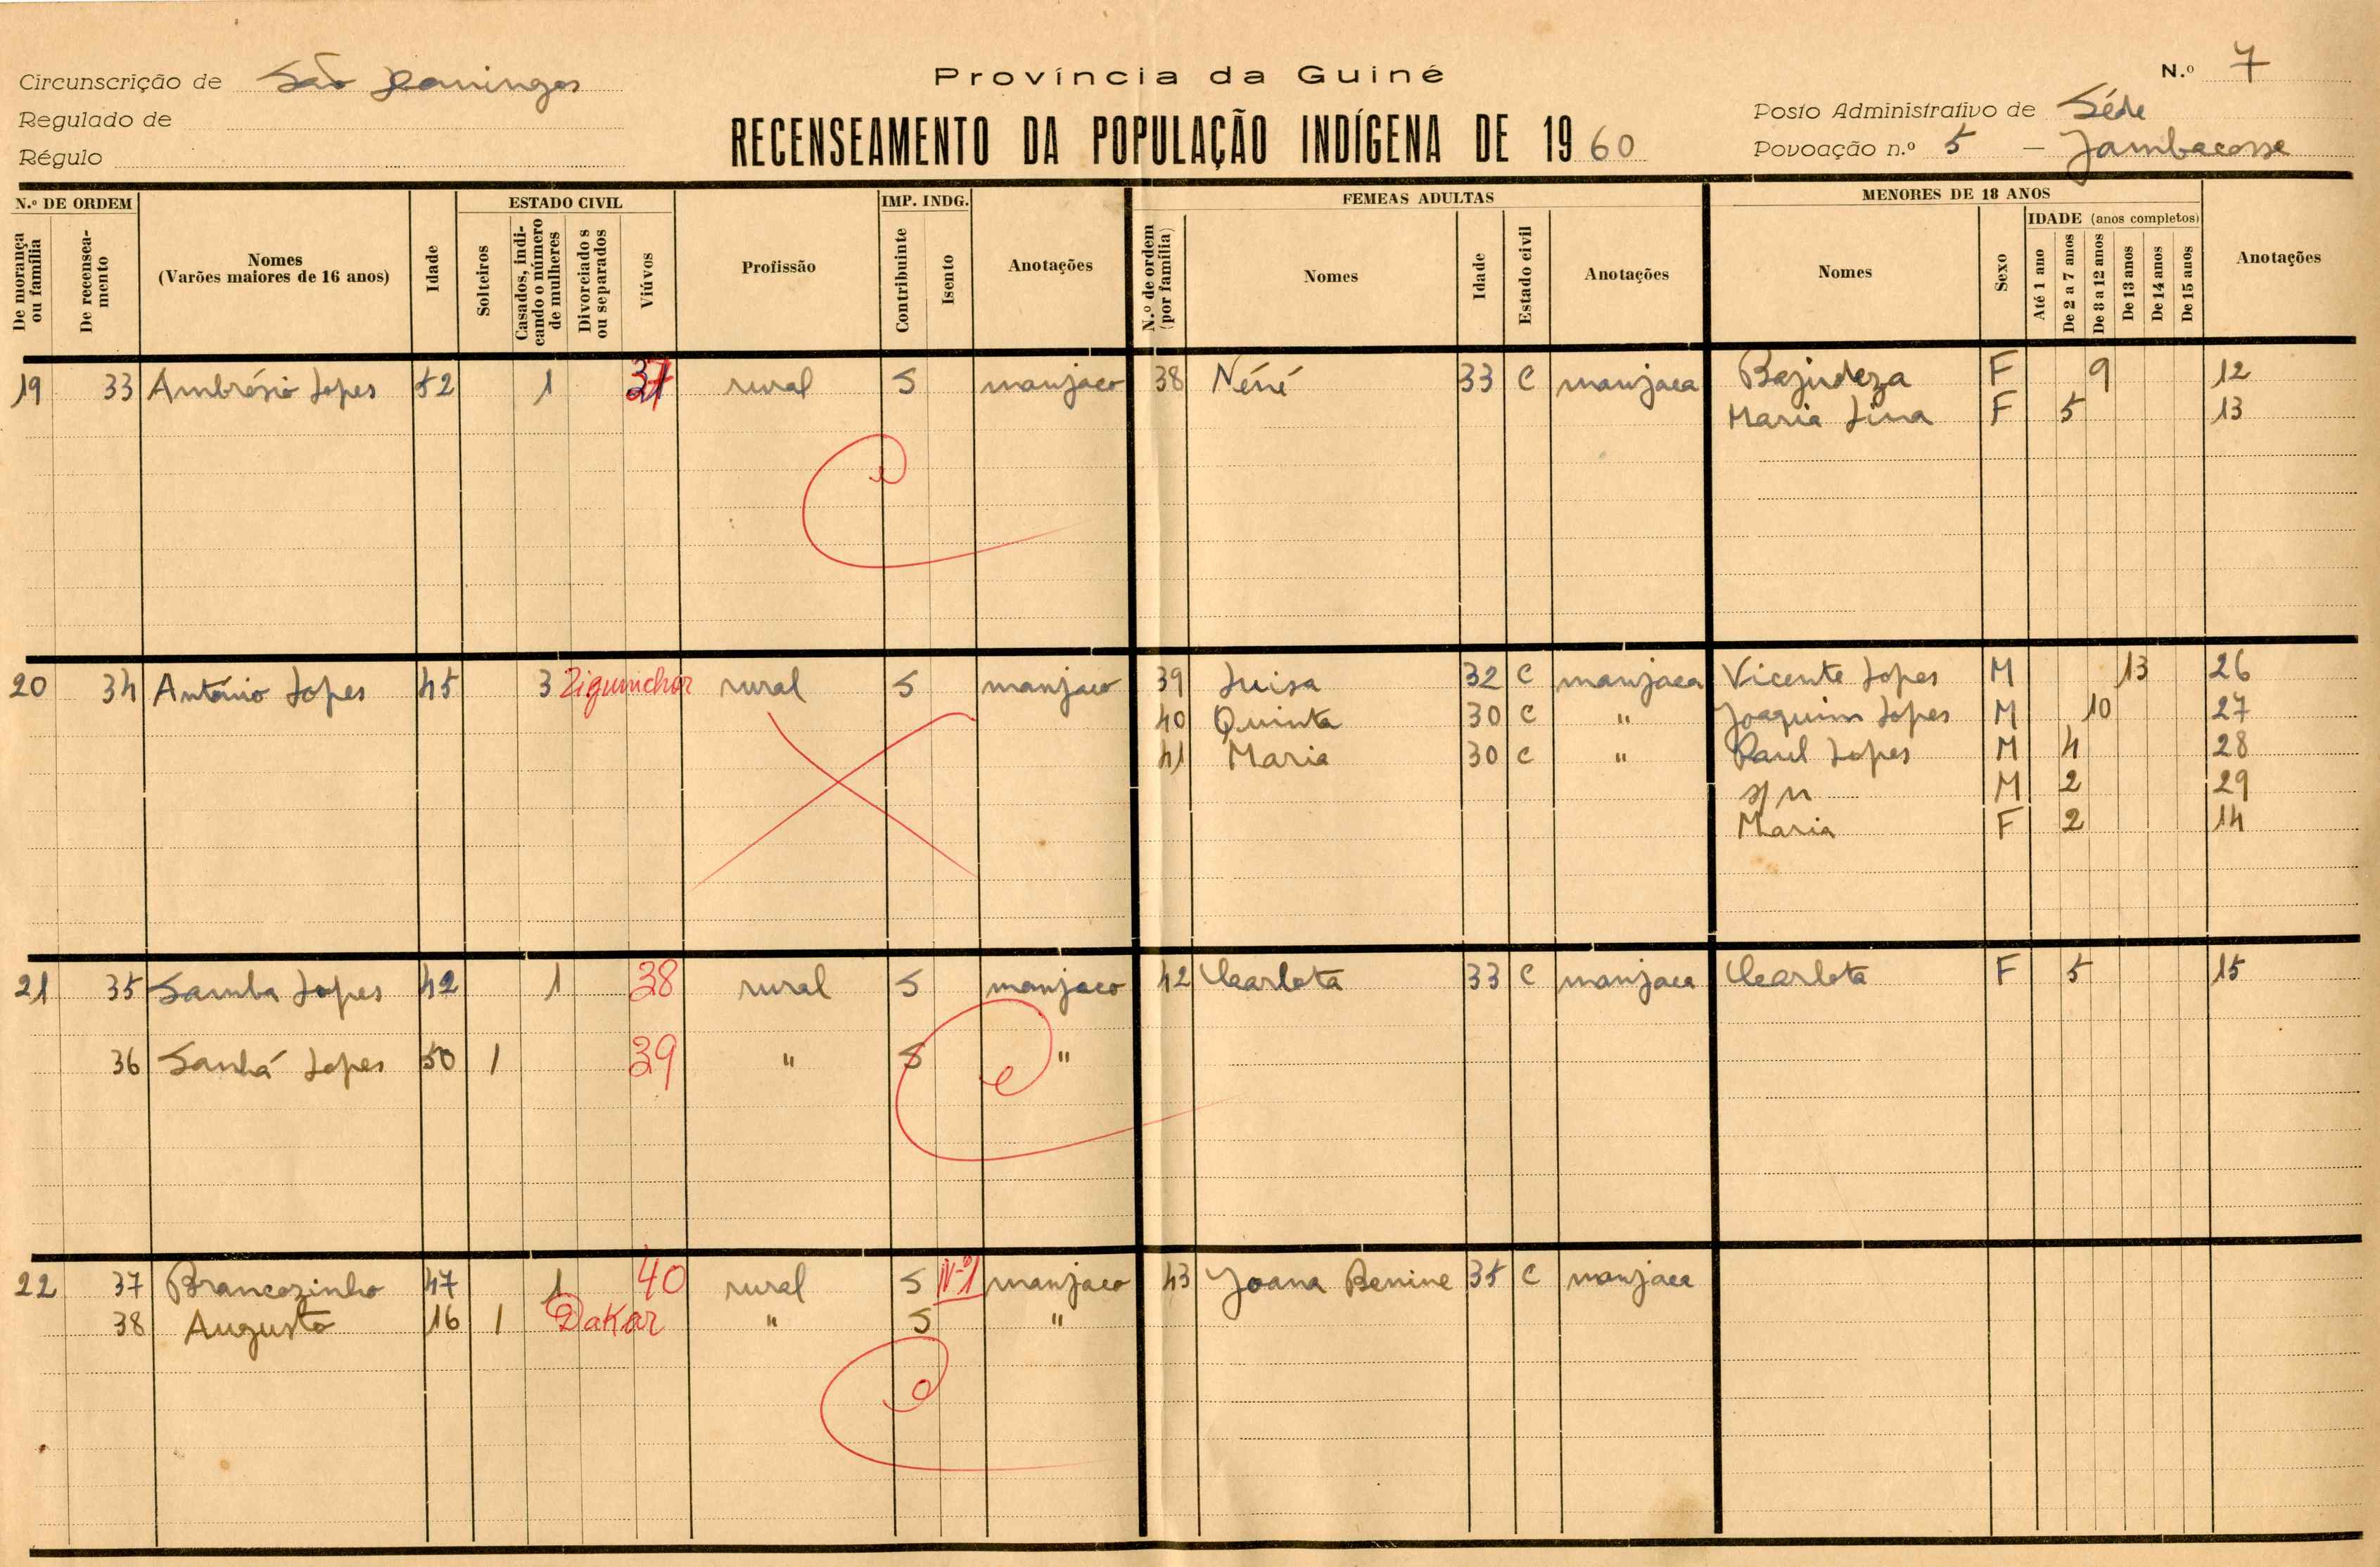 Província da Guiné
N.º 7
Circunscrição de São Domingos
Posto Administrativo de Séde
Regulado de
RECENSEAMENTO DA POPULAÇÃO INDÍGENA DE 1960
Povoação n.º 5 — Jambacosse
Régulo
N.º DE ORDEM
De morança ou família
De recenseamento
Nomes
(Varões maiores de 16 anos)
Idade
ESTADO CIVIL
Solteiros
Casados, indicando o número de mulheres
Divorciado s ou separados
Viúvos
Profissão
IMP. INDG.
Contribuinte
Isento
Anotações
FEMEAS ADULTAS
N.º de ordem (por família)
Nomes
Idade
Estado civil
Anotações
MENORES DE 18 ANOS
Nomes
Sexo
IDADE (anos completos)
Até 1 ano
De 2 a 7 anos
De 8 a 12 anos
De 13 anos
De 14 anos
De 15 anos
Anotações
19 33 Ambrósio Lopes 52 1 37 rural S manjaco 38 Néné 33 C manjaca Bajudeza F 9 12
Maria Lina F 5 13
20 34 António Lopes 45 3 Ziguinchor rural S manjaco 39 Luisa 32 C manjaca Vicente Lopes M 13 26
40 Quinta 30 C " Joaquim Lopes M 10 27
41 Maria 30 C " Raul Lopes M 4 28
s/n M 2 29
Maria F 2 14
21 35 Samba Lopes 42 1 38 rural S manjaco 42 Carlota 33 C manjaca Carlota F 5 15
36 Sanhá Lopes 50 1 39 " S "
22 37 Brancozinho 47 1 40 rural S Nº1 manjaco 43 Joana Benine 35 C manjaca
38 Augusto 16 1 Dakar " S "